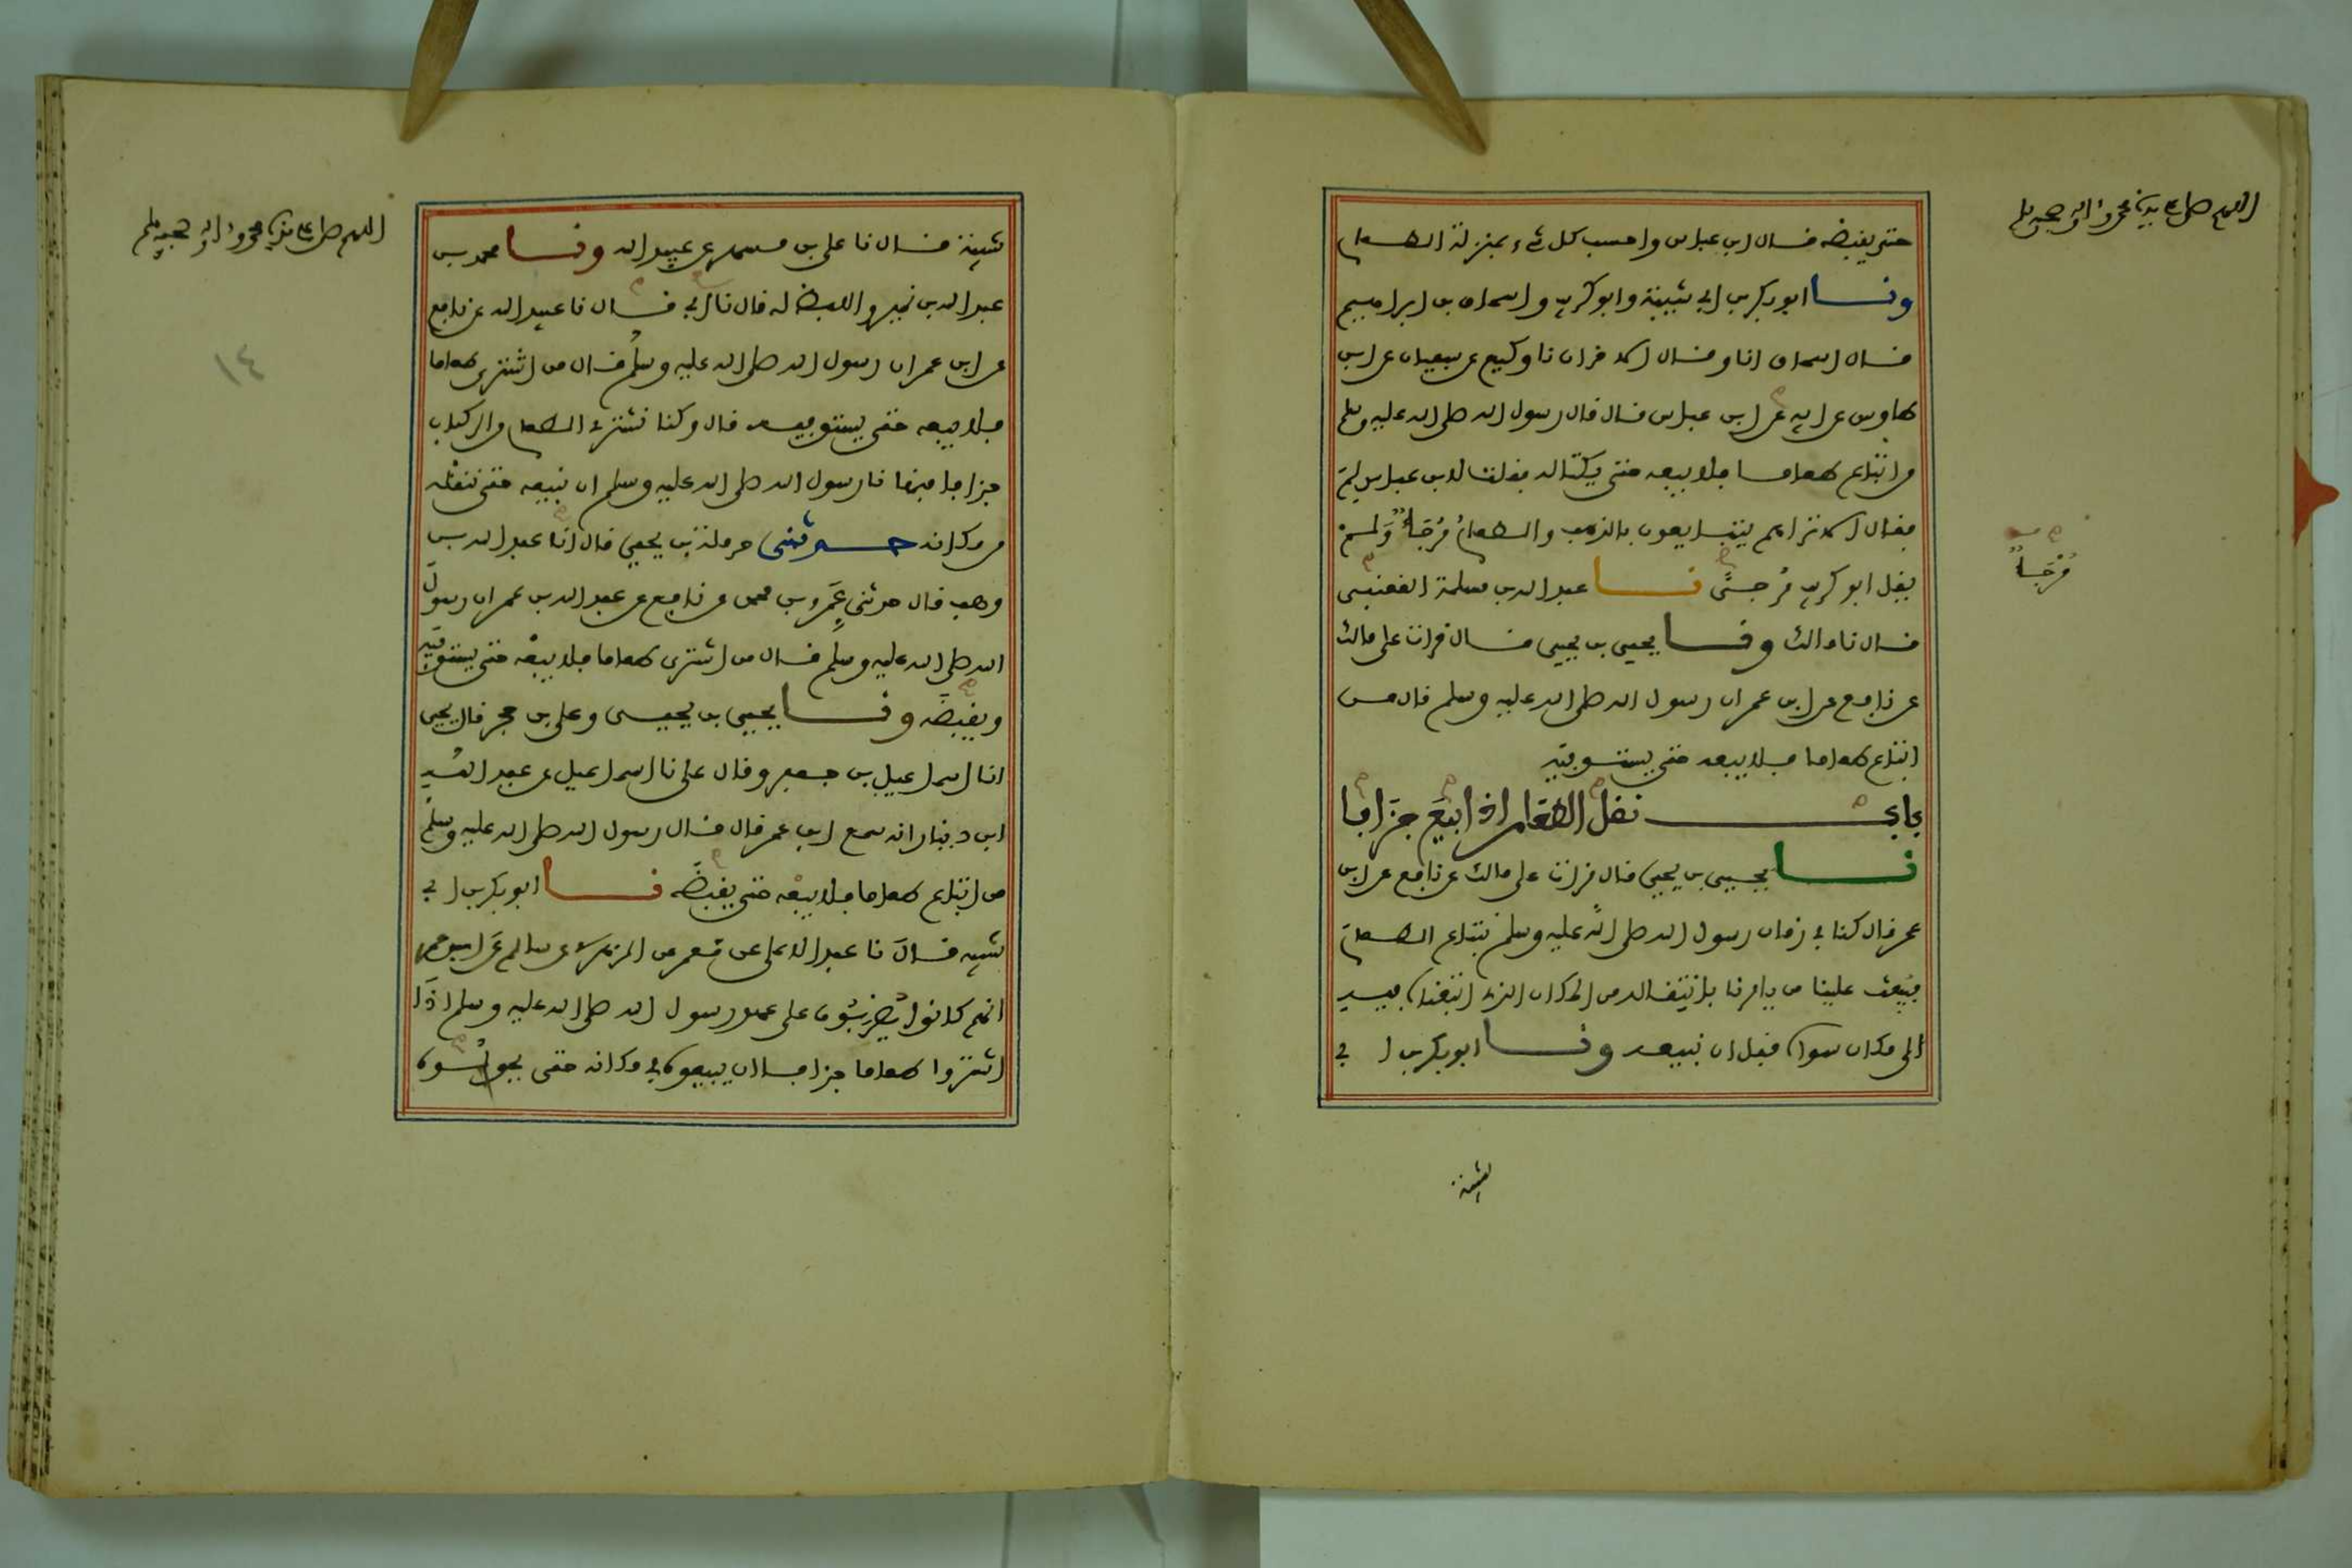 اللهم صل على سيدنا محمد وءاله وصحبه وسلم
حتى يقبضه قال ابن عباس واحسب كل شىء بمنزلة الطعام
ونا ابو بكر بن ابي شيبة وابو كريب واسحاق بن ابراهيم
قال اسحاق انا وقال الاخران نا وكيع عن سفيان عن ابن
طاوس عن ابيه عن ابن عباس قال قال رسول الله صلى الله عليه وسلم
من ابتاع طعاما فلا يبعه حتى يكتاله فقلت لابن عباس لم
فقال الا تراهم يتبايعون بالذهب والطعام مُرْجَأٌ ولم
يقل ابو كريب مُرْجى نا عبد الله بن مسلمة القعنبي
قال نا مالك ونا يحيى بن يحيى قال قرات على مالك
عن نافع عن ابن عمر ان رسول الله صلى الله عليه وسلم قال من
ابتاع طعاما فلا يبعه حتى يستوفيه
باب نقل الطعام اذا ابيع جزافا
نا يحيى بن يحيى قال قرات على مالك عن نافع عن ابن
عمر قال كنا في زمان رسول الله صلى الله عليه وسلم نبتاع الطعام
فيبعث علينا من يامرنا بانتقاله من المكان الذي ابتعناه فيه
الى مكان سواه قبل ان نبيعه ونا ابو بكر بن ابي
مُرْجَأٌ
شيبة
اللهم صل على سيدنا محمد وءاله وصحبه وسلم
١٤
شيبة قال نا علي بن مسهر عن عبيد الله ونا محمد بن
عبد الله بن نمير واللفظ له قال نا ابي قال نا عبيد الله عن نافع
عن ابن عمر ان رسول الله صلى الله عليه وسلم قال من اشترى طعاما
فلا يبعه حتى يستوفيه قال وكنا نشتري الطعام من الركبان
جزافا فنهانا رسول الله صلى الله عليه وسلم ان نبيعه حتى ننقله
من مكانه حدثني حرملة بن يحيى قال انا عبد الله بن
وهب قال حدثني عمر بن محمد عن نافع عن عبد الله بن عمر ان رسول
الله صلى الله عليه وسلم قال من اشترى طعاما فلا يبعه حتى يستوفيه
ويقبضه ونا يحيى بن يحيى وعلي بن حجر قال يحيى
انا اسماعيل بن جعفر وقال علي نا اسماعيل عن عبد الله
ابن دينار انه سمع ابن عمر قال قال رسول الله صلى الله عليه وسلم
من ابتاع طعاما فلا يبعه حتى يقبضه نا ابو بكر بن ابي
شيبه قال نا عبد الاعلى عن معمر عن الزهري عن سالم عن ابن عمر
انهم كانوا يُضربون على عهد رسول الله صلى الله عليه وسلم اذا
اشتروا طعاما جزافا ان يبيعوه في مكانه حتى يحولوه